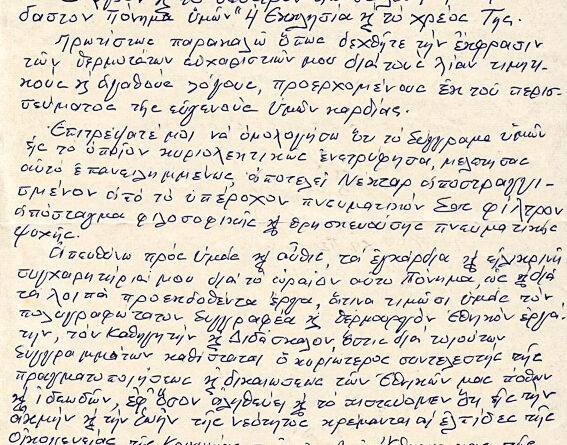 δαστον πόνημα ὑμῶν "ἡ Ἐκκλησία ϗ τὸ χρέος Της.
Πρωτίστως παρακαλῶ ὅπως δεχθῆτε τὴν ἔκφρασιν
τῶν θερμοτάτων εὐχαριστιῶν μου διὰ τοὺς λίαν τιμητι-
κοὺς ϗ ἀγαθοὺς λόγους, προερχομένους ἐκ τοῦ περισ-
σεύματος τῆς εὐγενοῦς ὑμῶν καρδίας.
Ἐπιτρέψατέ μοι νὰ ὁμολογήσω ὅτι τὸ σύγγραμα ὑμῶν
εἰς τὸ ὁποῖον κυριολεκτικῶς ἐνετρύφησα, μελετήσας
αὐτὸ ἐπανειλημμένως, ἀποτελεῖ Νέκταρ ἀποστραγγι-
σμένον ἀπὸ τὸ ὑπέροχον πνευματικὸν Σας φίλτρον
ἀπόσταγμα φιλοσοφικῆς ϗ θρησκευούσης πνευματικῆς
ψυχῆς.
Ἀπευθύνω πρὸς ὑμᾶς ϗ αὖθις, τὰ ἐγκάρδια ϗ εἰλικρινῆ
συγχαρητήριά μου διὰ τὸ ὡραῖον αὐτὸ Πόνημα, ὡς ϗ διὰ
τὰ λοιπὰ προεκδοθέντα ἔργα, ἅτινα τιμῶσι ὑμᾶς τὸν
πολυγραφώτατον συγγραφέα ϗ θερμουργὸν Ἐθνικὸν ἐργά-
την, τὸν Καθηγητὴν ϗ Διδάσκαλον, ὅστις διὰ τοιούτων
συγγραμμάτων καθίσταται ὁ κυριώτερος συντελεστὴς τῆς
πραγματοποιήσεως ϗ δικαιώσεως τῶν Ἐθνικῶν μας πόθων
ϗ ἰδεωδῶν, ἐφ' ὅσον ἀληθεύει ϗ τὸ πιστεύομεν ὅτι εἰς τὴν
ἀκμὴν ϗ τὴν ζωὴν τῆς νεότητος κρέμανται αἱ ἐλπίδες τῆς
Οἰκογενείας, τῆς